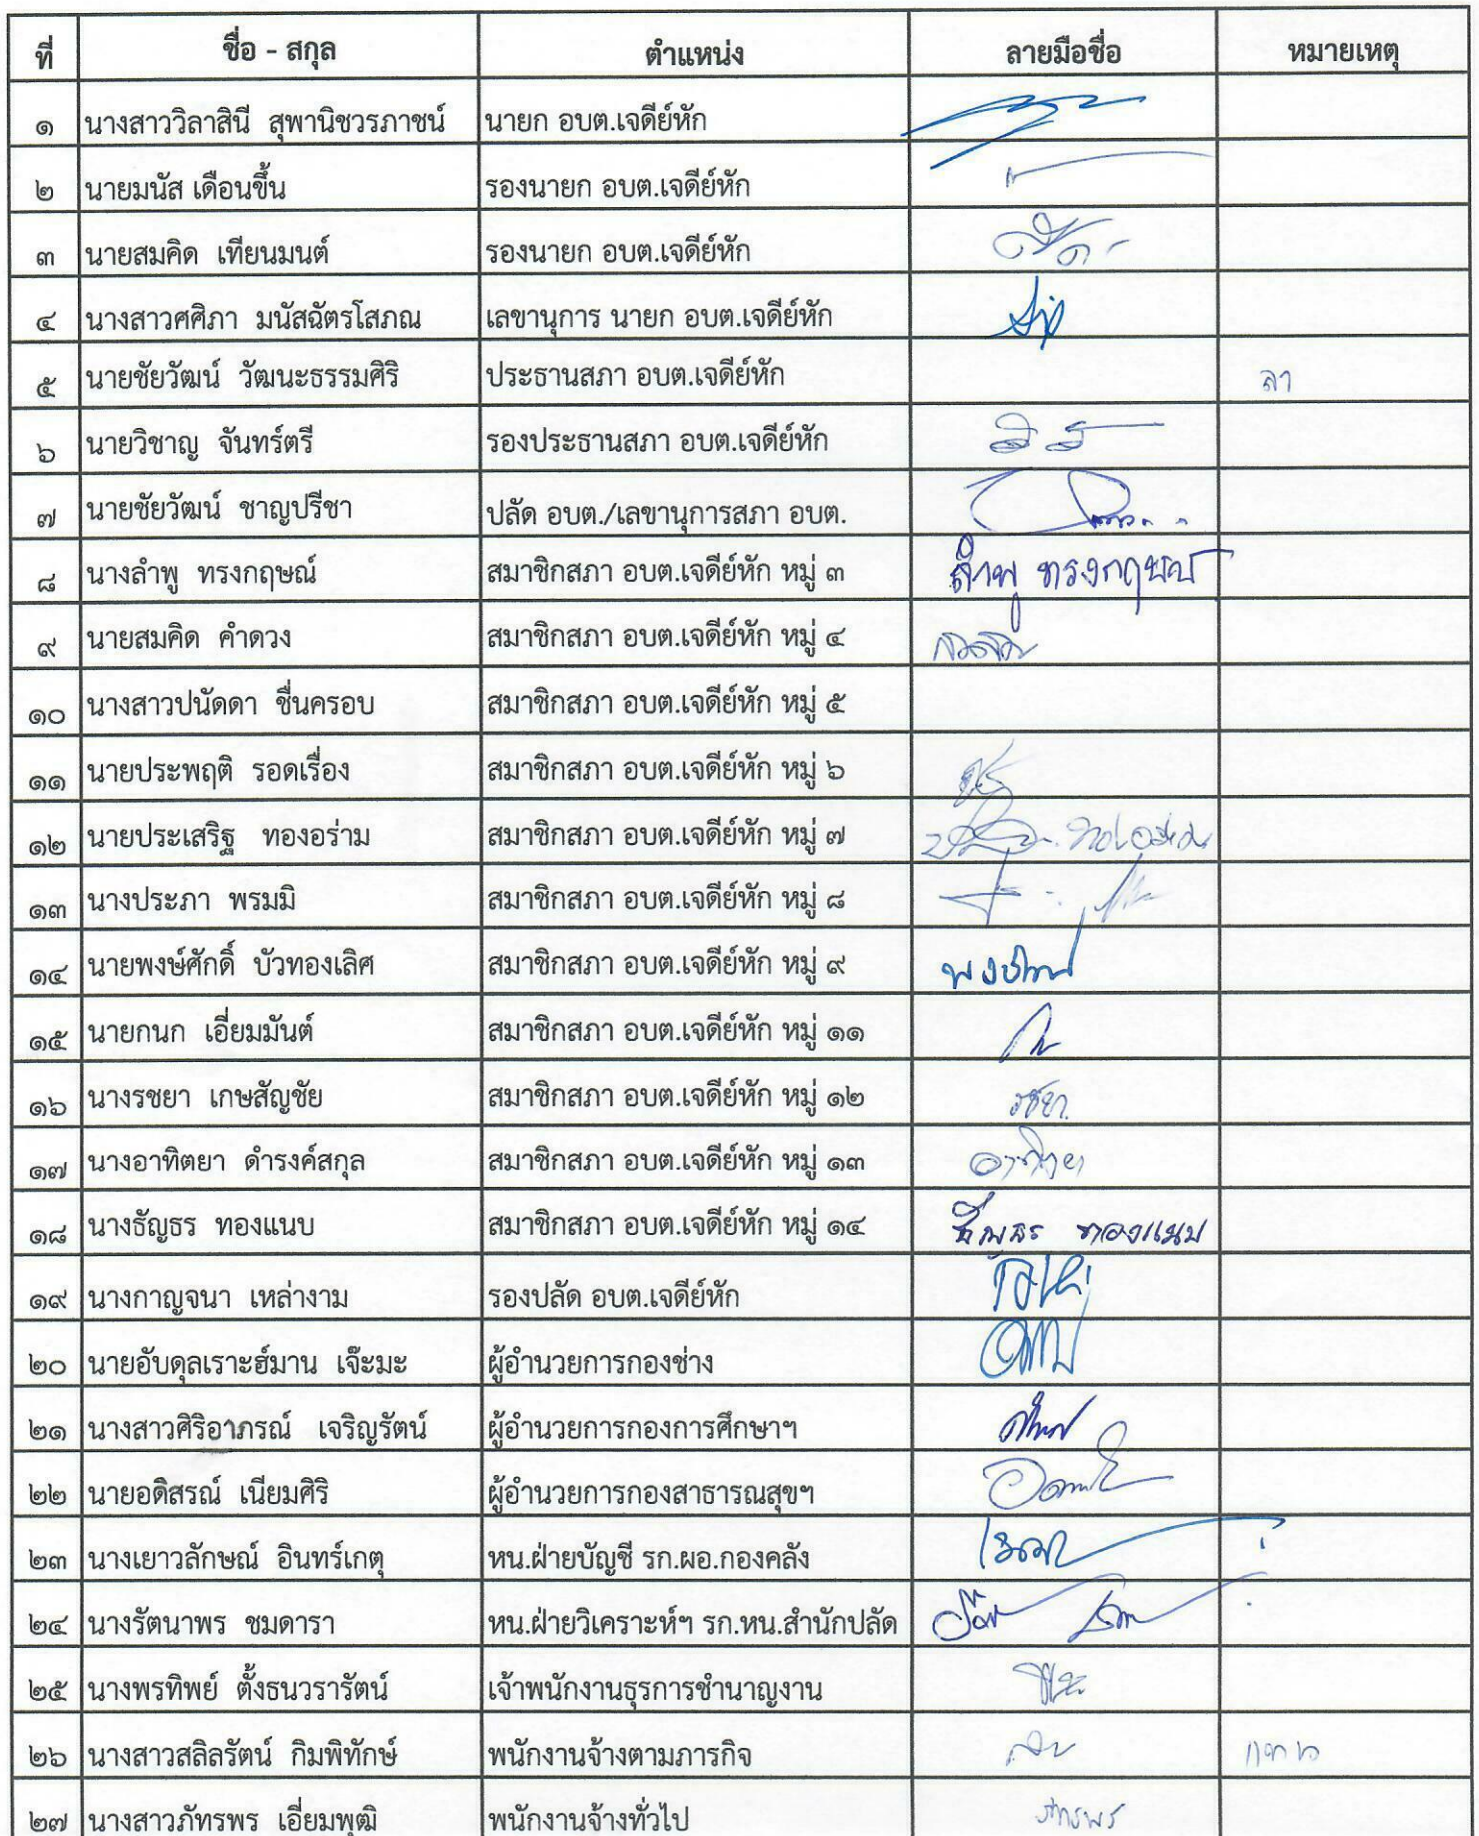 ที่ ชื่อ - สกุล ตำแหน่ง ลายมือชื่อ หมายเหตุ
๑ นางสาววิลาสินี สุพานิชวรภาชน์ นายก อบต.เจดีย์หัก
๒ นายมนัส เดือนขึ้น รองนายก อบต.เจดีย์หัก
๓ นายสมคิด เทียนมนต์ รองนายก อบต.เจดีย์หัก
๔ นางสาวศศิภา มนัสฉัตรโสภณ เลขานุการ นายก อบต.เจดีย์หัก
๕ นายชัยวัฒน์ วัฒนะธรรมศิริ ประธานสภา อบต.เจดีย์หัก ลา
๖ นายวิชาญ จันทร์ตรี รองประธานสภา อบต.เจดีย์หัก
๗ นายชัยวัฒน์ ชาญปรีชา ปลัด อบต./เลขานุการสภา อบต.
๘ นางลำพู ทรงกฤษณ์ สมาชิกสภา อบต.เจดีย์หัก หมู่ ๓ ลำพู ทรงกฤษณ์
๙ นายสมคิด คำดวง สมาชิกสภา อบต.เจดีย์หัก หมู่ ๔
๑๐ นางสาวปนัดดา ชื่นครอบ สมาชิกสภา อบต.เจดีย์หัก หมู่ ๕
๑๑ นายประพฤติ รอดเรื่อง สมาชิกสภา อบต.เจดีย์หัก หมู่ ๖
๑๒ นายประเสริฐ ทองอร่าม สมาชิกสภา อบต.เจดีย์หัก หมู่ ๗
๑๓ นางประภา พรมมิ สมาชิกสภา อบต.เจดีย์หัก หมู่ ๘
๑๔ นายพงษ์ศักดิ์ บัวทองเลิศ สมาชิกสภา อบต.เจดีย์หัก หมู่ ๙
๑๕ นายกนก เอี่ยมมันต์ สมาชิกสภา อบต.เจดีย์หัก หมู่ ๑๑
๑๖ นางรชยา เกษสัญชัย สมาชิกสภา อบต.เจดีย์หัก หมู่ ๑๒ รชยา
๑๗ นางอาทิตยา ดำรงค์สกุล สมาชิกสภา อบต.เจดีย์หัก หมู่ ๑๓ อาทิตยา
๑๘ นางธัญธร ทองแนบ สมาชิกสภา อบต.เจดีย์หัก หมู่ ๑๔ ธัญธร ทองแนบ
๑๙ นางกาญจนา เหล่างาม รองปลัด อบต.เจดีย์หัก
๒๐ นายอับดุลเราะฮ์มาน เจ๊ะมะ ผู้อำนวยการกองช่าง
๒๑ นางสาวศิริอาภรณ์ เจริญรัตน์ ผู้อำนวยการกองการศึกษาฯ
๒๒ นายอดิสรณ์ เนียมศิริ ผู้อำนวยการกองสาธารณสุขฯ
๒๓ นางเยาวลักษณ์ อินทร์เกตุ หน.ฝ่ายบัญชี รก.ผอ.กองคลัง
๒๔ นางรัตนาพร ชมดารา หน.ฝ่ายวิเคราะห์ฯ รก.หน.สำนักปลัด
๒๕ นางพรทิพย์ ตั้งธนวรารัตน์ เจ้าพนักงานธุรการชำนาญงาน
๒๖ นางสาวสลิลรัตน์ กิมพิทักษ์ พนักงานจ้างตามภารกิจ
๒๗ นางสาวภัทรพร เอี่ยมพุฒิ พนักงานจ้างทั่วไป ภัทรพร